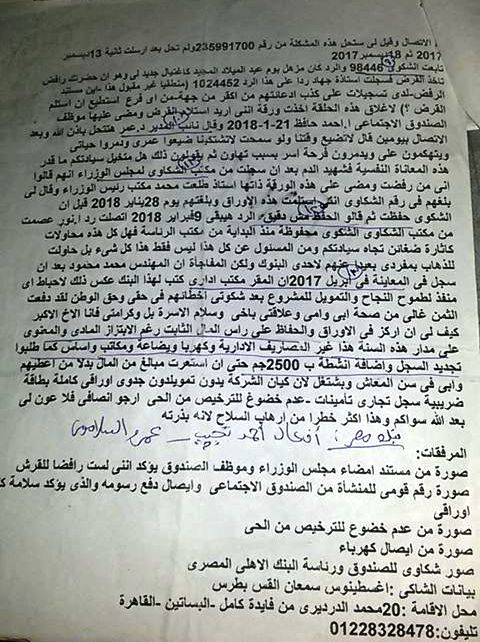 الاتصال وقيل لى ستحل هذه المشكلة من رقم 235991700ولم تحل بعد ارسلت ثانية 13ديسمبر
2017 ثم 18ديسمبر 2017
تابعت الشكوى 98446 والرد كان مزهل يوم عيد الميلاد المجيد كاغتيال جديد لى وهو ان حضرتك رافض
القرض فسجلت استاذة جهاد ردا على هذا الرد 1024452 (منطقيا غير مقبول هذا -اين مستند
الرفض-لدى تسجيلات على كذب ادعائتهم من اكفر من جهة-من اى فرع استطيع ان استلم
القرض ؟) لاغلاق هذه الحلقة اخذت ورقة اننى اريد استلام القرض ومضى عليها موظف
الصندوق الاجتماعى ا.احمد حافظ 21-1-2018 وقال نائب المدير د.عمر هتتحل باذن الله وبعد
الاتصال بيومين قال لاتضيع وقتنا ولو سمحت لاتشتكينا ضيعوا عمرى ودمروا حياتى
ويتهمكون على ويدمرون فرحة أسر بسبب تهاون ثم يقولون ذلك هل متخيل سيادتكم ما قدر
هذه المعاناة النفسية فشهيد الدم بعد ان سجلت من مكتب الشكاوى لمجلس الوزراء انهم قالوا
انى من رفضت ومضى على هذه الورقة ذاتها استاذ طلعت محمد مكتب رئيس الوزراء وقال لى
بلغهم فى رقم الشكاوى انك استلمت هذه الاوراق وبلغتهم يوم 28يناير 2018 قبل ان
الشكوى حفظت ثم قالو الحفظ مش دقيق- الرد هيبقى 9فبراير 2018 اتصلت رد ا.نور عصمت
من مكتب الشكاوى الشكوى محفوظة منذ البداية من مكتب الرئاسة فهل كل هذه محاولات
كاثارة ضغائن تجاه سيادتكم ومن المسئول عن كل هذا ليس فقط هذا كل شىء بل حاولت
للذهاب بمفردى بعيدا عنهم لاحدى البنوك ولكن المفاجأة ان المهندس محمد محمود بعد ان
سجل فى المعاينة فى ابريل 2017ان المقر مكتب ادارى كتب لهذا البنك عكس ذلك لاحباط اى
منفذ لطموح النجاح والتمويل للمشروع بعد شكوتى اخطائهم فى حقى وحق الوطن لقد دفعت
الثمن غالى من صحة ابى وامى وعلاقتى باخى وسلام الاسرة بل وكرامتى فانا الاخ الاكبر
كيف لى ان اركز فى الاوراق والحفاظ على راس المال الثابت رغم الابتزاز المادى والمعنوى
على مدار هذه السنة هذا غير المصاريف الادارية وكهربا وبضاعة ومكاتب واساس كما طلبوا
تجديد السجل واضافة انشطة ب 2500جم حتى ان استعرت مبالغ من المال بدلا من اعطيهم
وابى فى سن المعاش وبشتغل لان كيان الشركة بدون تمويلدون جدوى اوراقى كاملة بطاقة
ضريبية سجل تجارى تأمينات -عدم خضوع للترخيص من الحى ارجو انصافى فلا عون لى
بعد الله سواكم وهذا اكثر خطرا من ارهاب السلاح لانه بذرته
المرفقات:
صورة من مستند امضاء مجلس الوزراء وموظف الصندوق يؤكد اننى لست رافضا للقرش
صورة رقم قومى للمنشأة من الصندوق الاجتماعى وايصال دفع رسومه والذى يؤكد سلامة كل
اوراقى
صورة من عدم خضوع للترخيص من الحى
صورة من ايصال كهرباء
صور شكاوى للصندوق ورئاسة البنك الاهلى المصرى
بيانات الشاكى :اغسطينوس سمعان القس بطرس
محل الاقامة :20محمد الدرديرى من فايدة كامل -البساتين -القاهرة
تليفون:01228328478